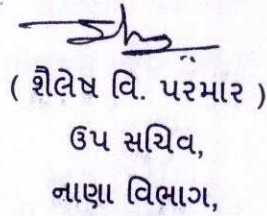 ( શૈલેષ વિ. પરમાર )
ઉપ સચિવ,
નાણા વિભાગ,